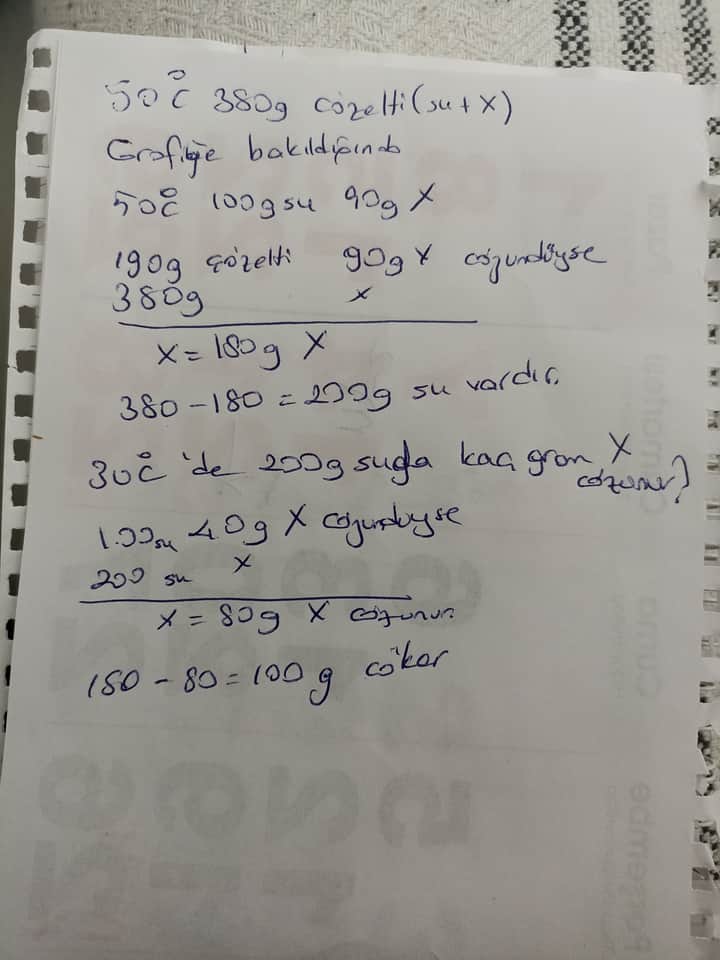 50°C 380g çözelti (su + X)
Grafiğe bakıldığında
50°C 100g su 90g X
190g çözelti 90g X çözündüyse
380g x
x = 180g X
380 - 180 = 200g su vardır.
30°C 'de 200g suda kaç gram X
çözünür?
100 su 40g X çözündüyse
200 su x
x = 80g X çözünür.
180 - 80 = 100 g çöker
Pazar
Cumartesi
Cuma
Perşembe